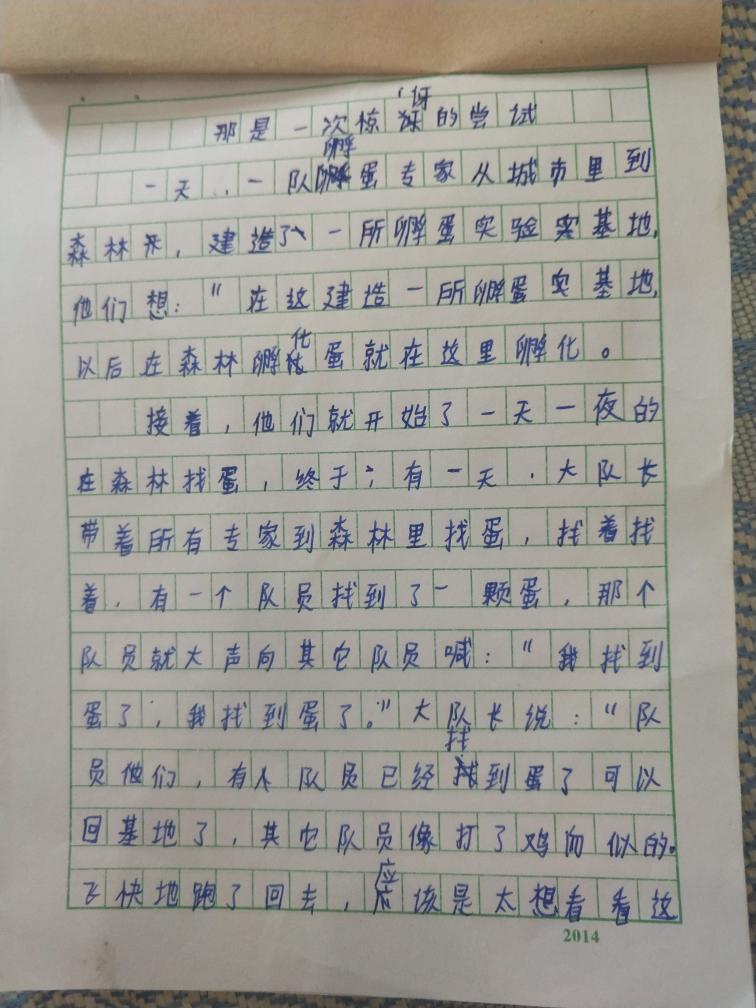 那是一次惊讶的尝试
一天，一队孵蛋专家从城市里到
森林来，建造了一所孵蛋实验实基地，
他们想：“在这建造一所孵蛋实基地，
以后在森林孵化蛋就在故里孵化。
接着，他们就开始了一天一夜的
在森林找蛋，终于；有一天，大队长
带着所有专家到森林里找蛋，找着找
着，有一个队员找到了一颗蛋，那个
队员就大声向其它队员喊：“我找到
蛋了，我找到蛋了。”大队长说：“队
员他们，有个队员已经找到蛋了可以
回基地了，其它队员像打了鸡血似的。
飞快地跑了回去，应该是太想看看这
2014